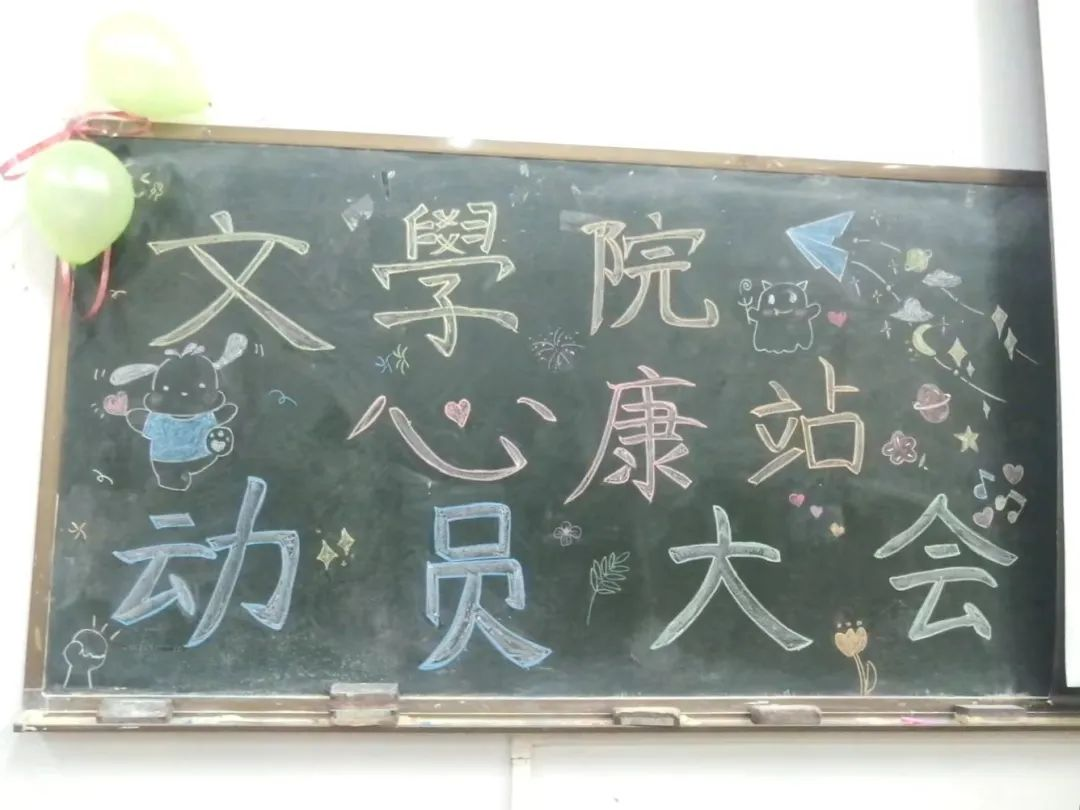 文學院
心康站
动员大会